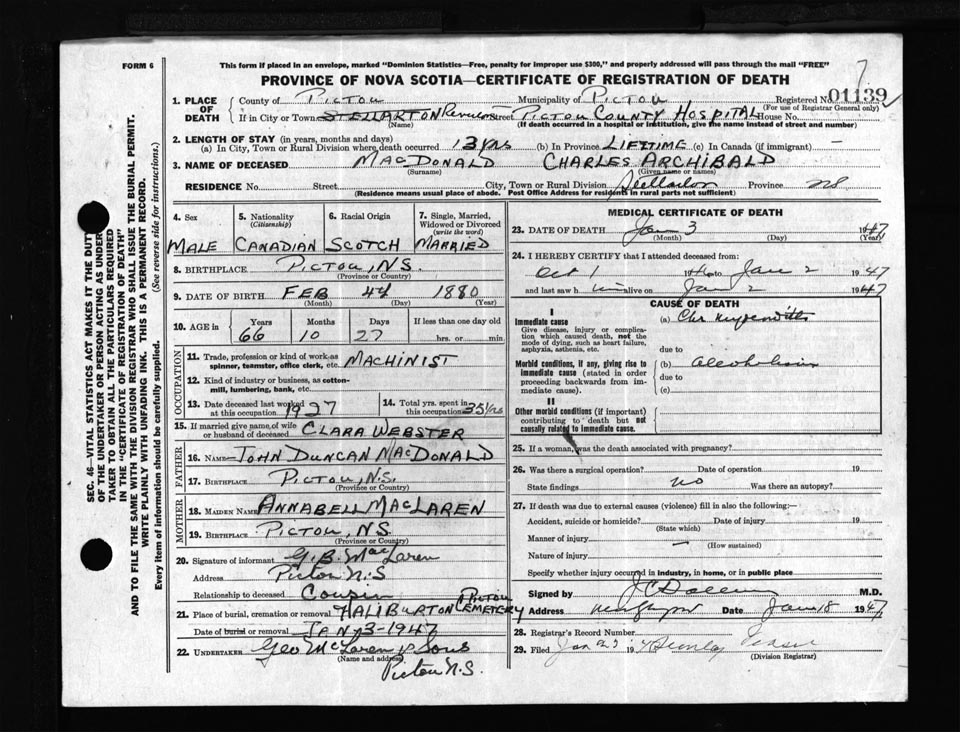 FORM 6
This form if placed in an envelope, marked "Dominion Statistics—Free, penalty for improper use $300," and properly addressed will pass through the mail "FREE"
PROVINCE OF NOVA SCOTIA—CERTIFICATE OF REGISTRATION OF DEATH
1. PLACE OF DEATH County of PICTOU Municipality of PICTOU Registered No. 01139
(For use of Registrar General only)
If in City or Town STELLARTON Street PICTOU COUNTY HOSPITAL House No.
(Name) (If death occurred in a hospital or institution, give the name instead of street and number)
2. LENGTH OF STAY (in years, months and days)
(a) In City, Town or Rural Division where death occurred 13 YRS (b) In Province LIFETIME (c) In Canada (if immigrant) —
3. NAME OF DECEASED MACDONALD CHARLES ARCHIBALD
(Surname) (Given name or names)
RESIDENCE No. Street City, Town or Rural Division Stellarton Province NS
(Residence means usual place of abode. Post Office Address for residents in rural parts not sufficient)
4. Sex MALE
5. Nationality (Citizenship) CANADIAN
6. Racial Origin SCOTCH
7. Single, Married, Widowed or Divorced (write the word) MARRIED
8. BIRTHPLACE PICTOU, N.S.
(Province or Country)
9. DATE OF BIRTH FEB 4 1880
(Month) (Day) (Year)
10. AGE in Years Months Days If less than one day old
66 10 27 hrs. or min
OCCUPATION
11. Trade, profession or kind of work—as spinner, teamster, office clerk, etc. MACHINIST
12. Kind of industry or business, as cotton-mill, lumbering, bank, etc.
13. Date deceased last worked at this occupation 1927
14. Total yrs. spent in this occupation 35 yrs
15. If married give name of wife or husband of deceased CLARA WEBSTER
FATHER
16. NAME JOHN DUNCAN MACDONALD
17. BIRTHPLACE PICTOU, N.S.
(Province or Country)
MOTHER
18. MAIDEN NAME ANNABELL MACLAREN
19. BIRTHPLACE PICTOU, N.S.
(Province or Country)
20. Signature of informant G. B. MacLaren
Address Pictou N.S
Relationship to deceased Cousin
21. Place of burial, cremation or removal HALIBURTON CEMETERY PICTOU
Date of burial or removal JAN 3-1947
22. UNDERTAKER Geo McLaren & Sons
(Name and address)
Pictou N.S.
MEDICAL CERTIFICATE OF DEATH
23. DATE OF DEATH Jan 3 1947
(Month) (Day) (Year)
24. I HEREBY CERTIFY that I attended deceased from:
Oct 1 19 to Jan 2 1947
and last saw h im alive on Jan 2 1947
CAUSE OF DEATH
I
Immediate cause (a) Chr
Give disease, injury or complication which caused death, not the mode of dying, such as heart failure, asphyxia, asthenia, etc.
due to
Morbid conditions, if any, giving rise to immediate cause (stated in order proceeding backwards from immediate cause).
(b) Alcoholism
due to
(c)
II
Other morbid conditions (if important) contributing to death but not causally related to immediate cause.
25. If a woman, was the death associated with pregnancy?
26. Was there a surgical operation? Date of operation 19
State findings no Was there an autopsy?
27. If death was due to external causes (violence) fill in also the following:—
Accident, suicide or homicide? Date of injury 19
(State which)
Manner of injury —
(How sustained)
Nature of injury
Specify whether injury occurred in industry, in home, or in public place
Signed by M.D.
Address Date Jan 18 1947
28. Registrar's Record Number
29. Filed Jan 19
(Division Registrar)
SEC. 46—VITAL STATISTICS ACT MAKES IT THE DUTY
OF THE UNDERTAKER OR PERSON ACTING AS UNDER-
TAKER TO OBTAIN ALL THE PARTICULARS REQUIRED
IN THE "CERTIFICATE OF REGISTRATION OF DEATH"
AND TO FILE THE SAME WITH THE DIVISION REGISTRAR WHO SHALL ISSUE THE BURIAL PERMIT.
WRITE PLAINLY WITH UNFADING INK. THIS IS A PERMANENT RECORD.
Every item of information should be carefully supplied. (See reverse side for instructions.)